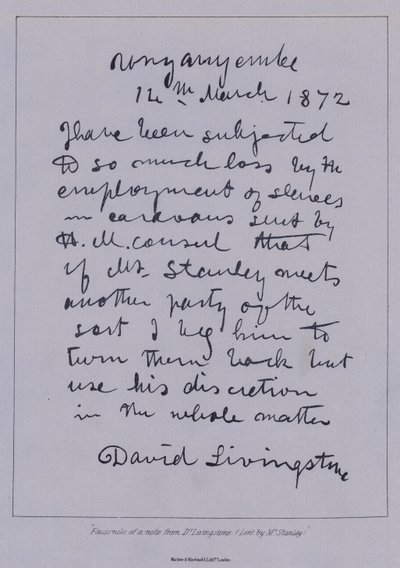 Unyanyembe
14th March 1872
I have been subjected
to so much loss by the
employment of slaves
in caravans sent by
H. M. consul that
if Mr. Stanley meets
another party of the
sort I beg him to
turn them back but
use his discretion
in the whole matter
David Livingstone
"Facsimile of a note from Dr Livingstone (Lent by Mr Stanley)"
Maclure & Macdonald, Lithrs London.